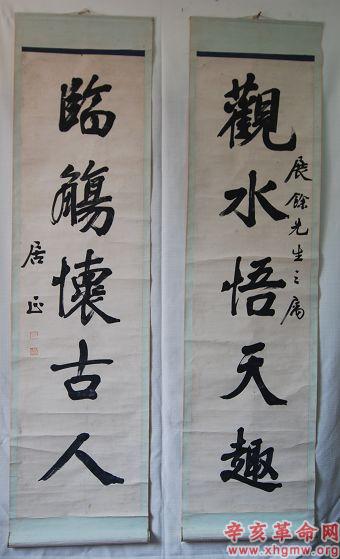 觀水悟天趣
展餘先生之属
臨觴懷古人
居正
辛亥革命网
www.xhgmw.org